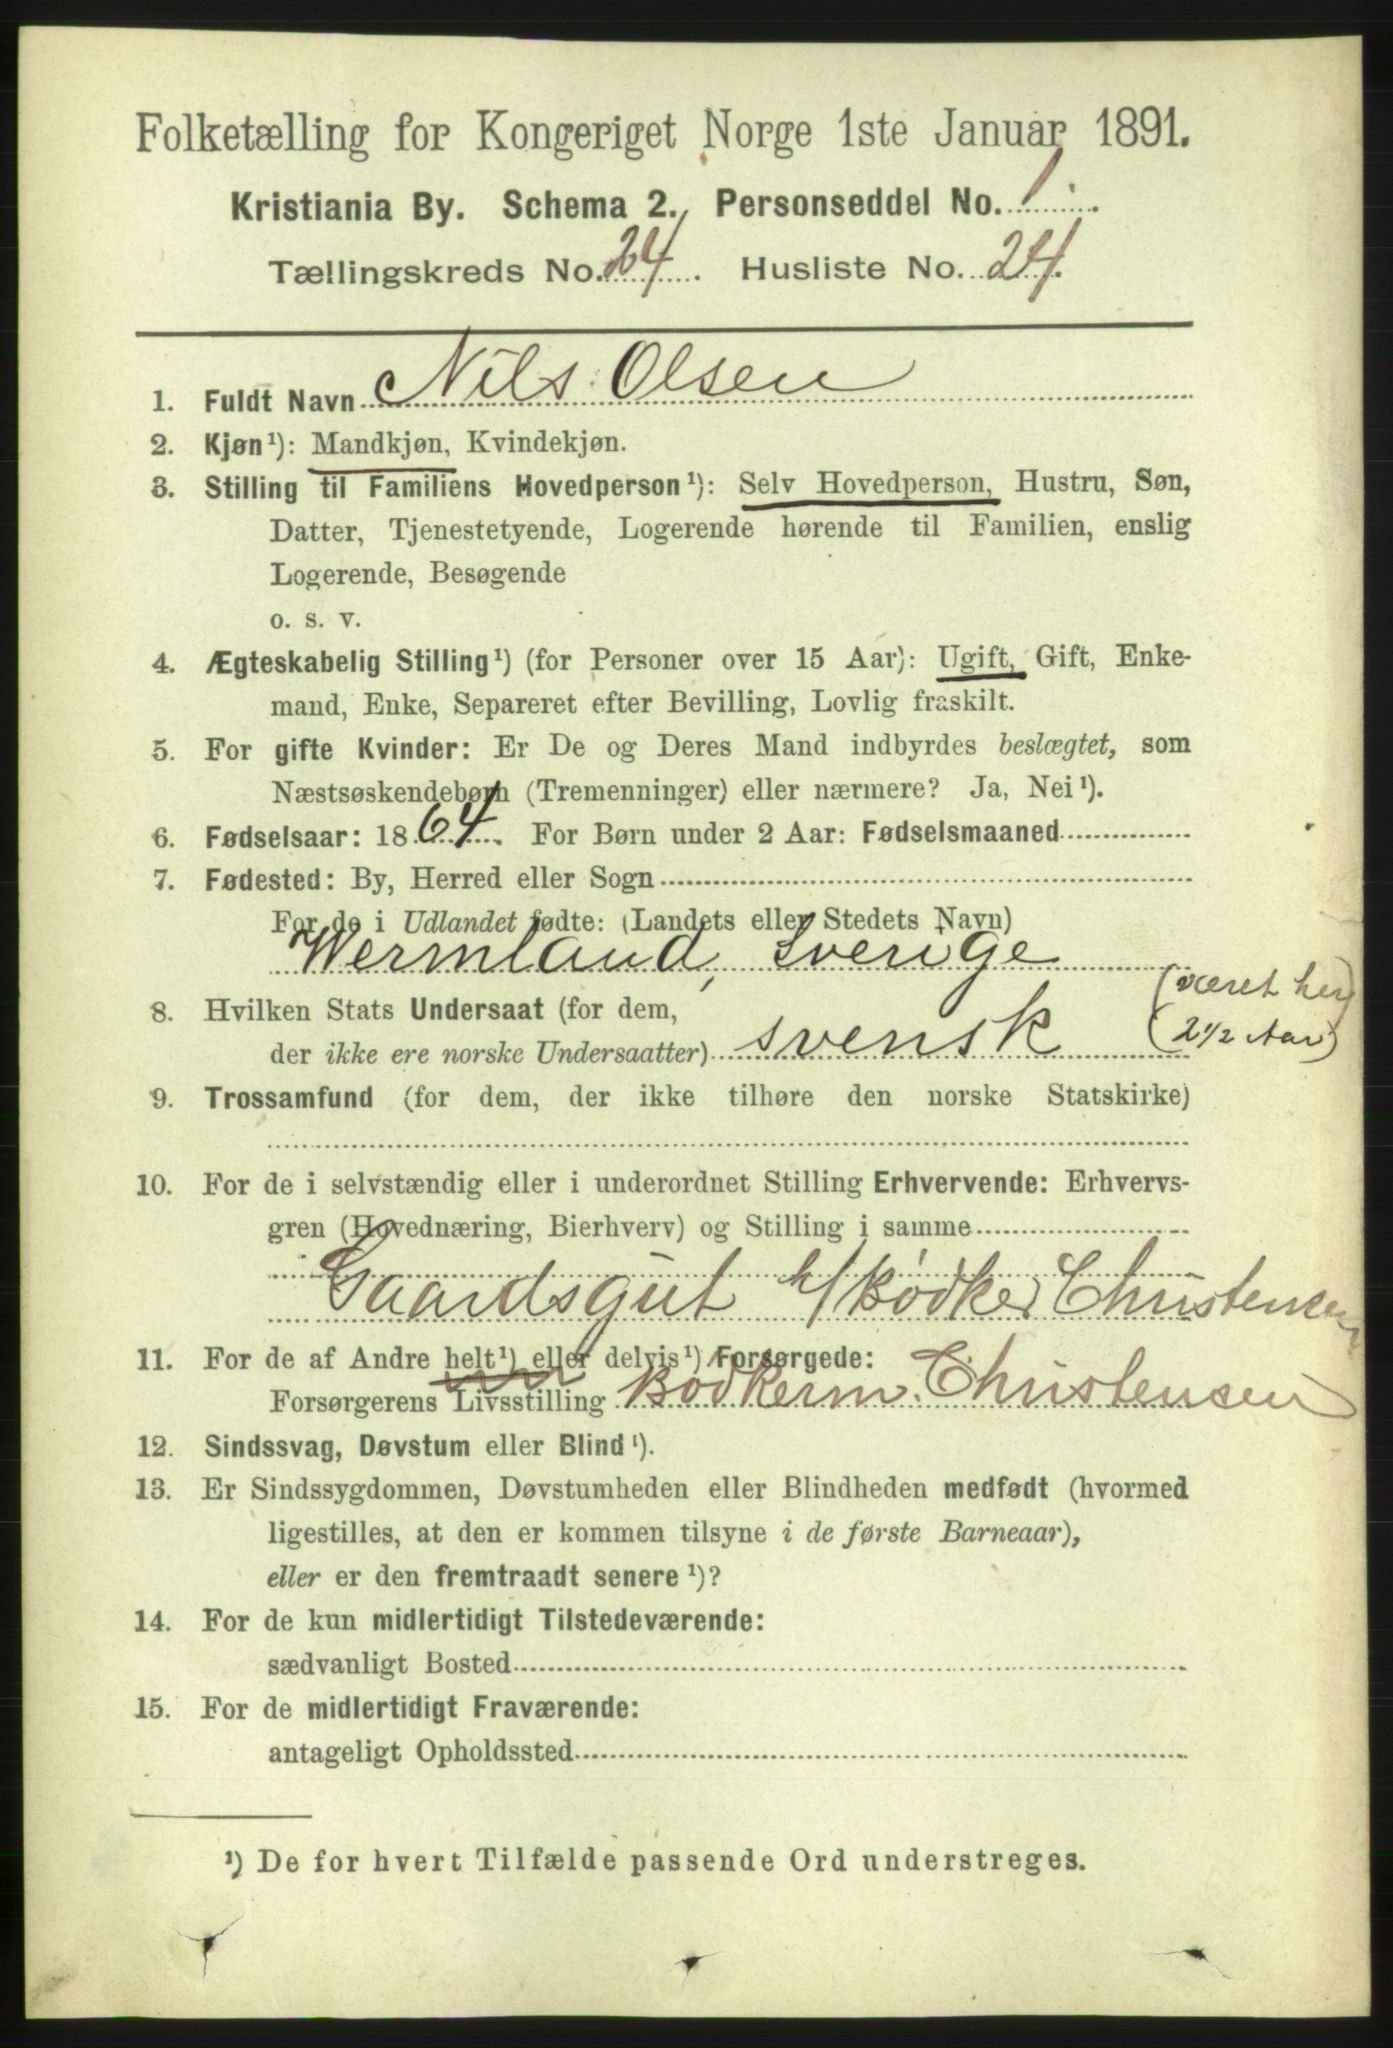 Folketælling for Kongeriget Norge 1ste Januar 1891.
Kristiania By. Schema 2. Personseddel No. 1.
Tællingskreds No. 24. Husliste No. 24.
1. Fuldt Navn Nils Olsen
2. Kjøn¹): Mandkjøn, Kvindekjøn.
3. Stilling til Familiens Hovedperson¹): Selv Hovedperson, Hustru, Søn,
Datter, Tjenestetyende, Logerende hørende til Familien, enslig
Logerende, Besøgende
o. s. v.
4. Ægteskabelig Stilling¹) (for Personer over 15 Aar): Ugift, Gift, Enke-
mand, Enke, Separeret efter Bevilling, Lovlig fraskilt.
5. For gifte Kvinder: Er De og Deres Mand indbyrdes beslægtet, som
Næstsøskendebørn (Tremenninger) eller nærmere? Ja, Nei¹).
6. Fødselsaar: 1864. For Børn under 2 Aar: Fødselsmaaned
7. Fødested: By, Herred eller Sogn
For de i Udlandet fødte: (Landets eller Stedets Navn)
Wermland, Sverige
8. Hvilken Stats Undersaat (for dem, (været her
der ikke ere norske Undersaatter) svensk (2½ Aar)
9. Trossamfund (for dem, der ikke tilhøre den norske Statskirke)
10. For de i selvstændig eller i underordnet Stilling Erhvervende: Erhvervs-
gren (Hovednæring, Bierhverv) og Stilling i samme
Gaardsgut h/Bødker Christensen
11. For de af Andre helt¹) eller delvis¹) Forsørgede:
Forsørgerens Livsstilling Bødkerm. Christensen
12. Sindssvag, Døvstum eller Blind¹).
13. Er Sindssygdommen, Døvstumheden eller Blindheden medfødt (hvormed
ligestilles, at den er kommen tilsyne i de første Barneaar),
eller er den fremtraadt senere¹)?
14. For de kun midlertidigt Tilstedeværende:
sædvanligt Bosted
15. For de midlertidigt Fraværende:
antageligt Opholdssted
¹) De for hvert Tilfælde passende Ord understreges.